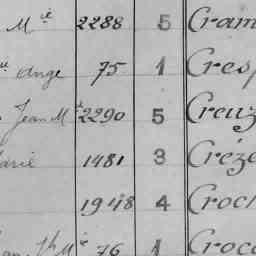 Mie 2288 5 Cram
ange 75 1 Cresp
Jean Mie 2290 5 Creuz
arie 1481 3 Créze
1948 4 Croch
Jh Mie 76 1 Croco